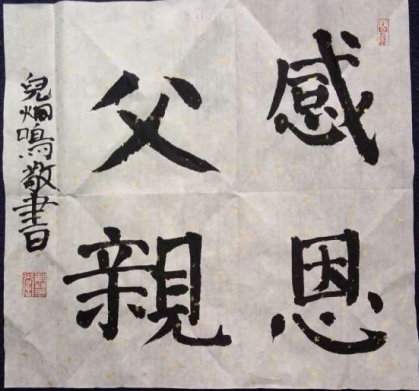 感恩
父親
兒炯鳴敬書日